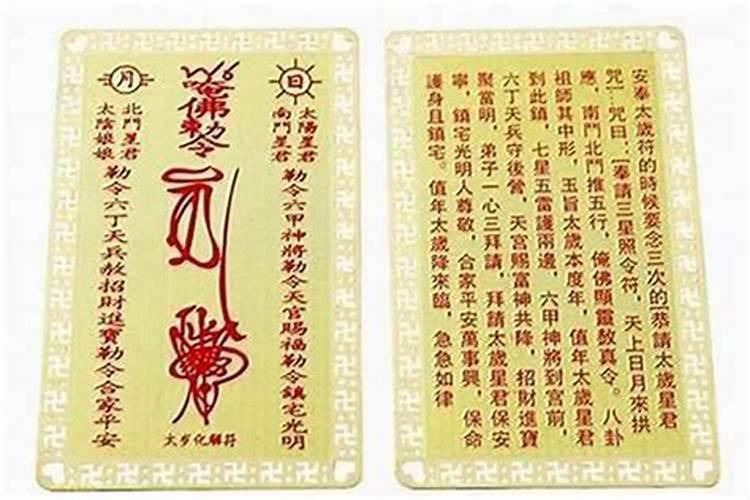 日
太陽星君
南門星君
勒令六甲神將勒令天官賜福勒令鎮宅光明
唵佛勅令
太岁化解符
月
北門星君
太陰娘娘
勒令六丁天兵敖招財進寶勒令合家平安
安奉太歲符的時候要念三次的[恭請太歲星君
咒]…咒曰:[奉請三星照令符,天上日月來拱
應,南門北門推五行,俺佛顯靈敖真令。八卦
祖師其中形,玉旨太歲本度年,值年太歲星君
到此鎮,七星五雷護兩邊,六甲神將到宮前,
六丁天兵守後營,天宮賜富神共降,招財進寶
聚當明,弟子一心三拜請,拜請太歲星君保安
寧,鎮宅光明人尊敬,合家平安萬事興,保命
護身且鎮宅。值年太歲降來臨,急急如律